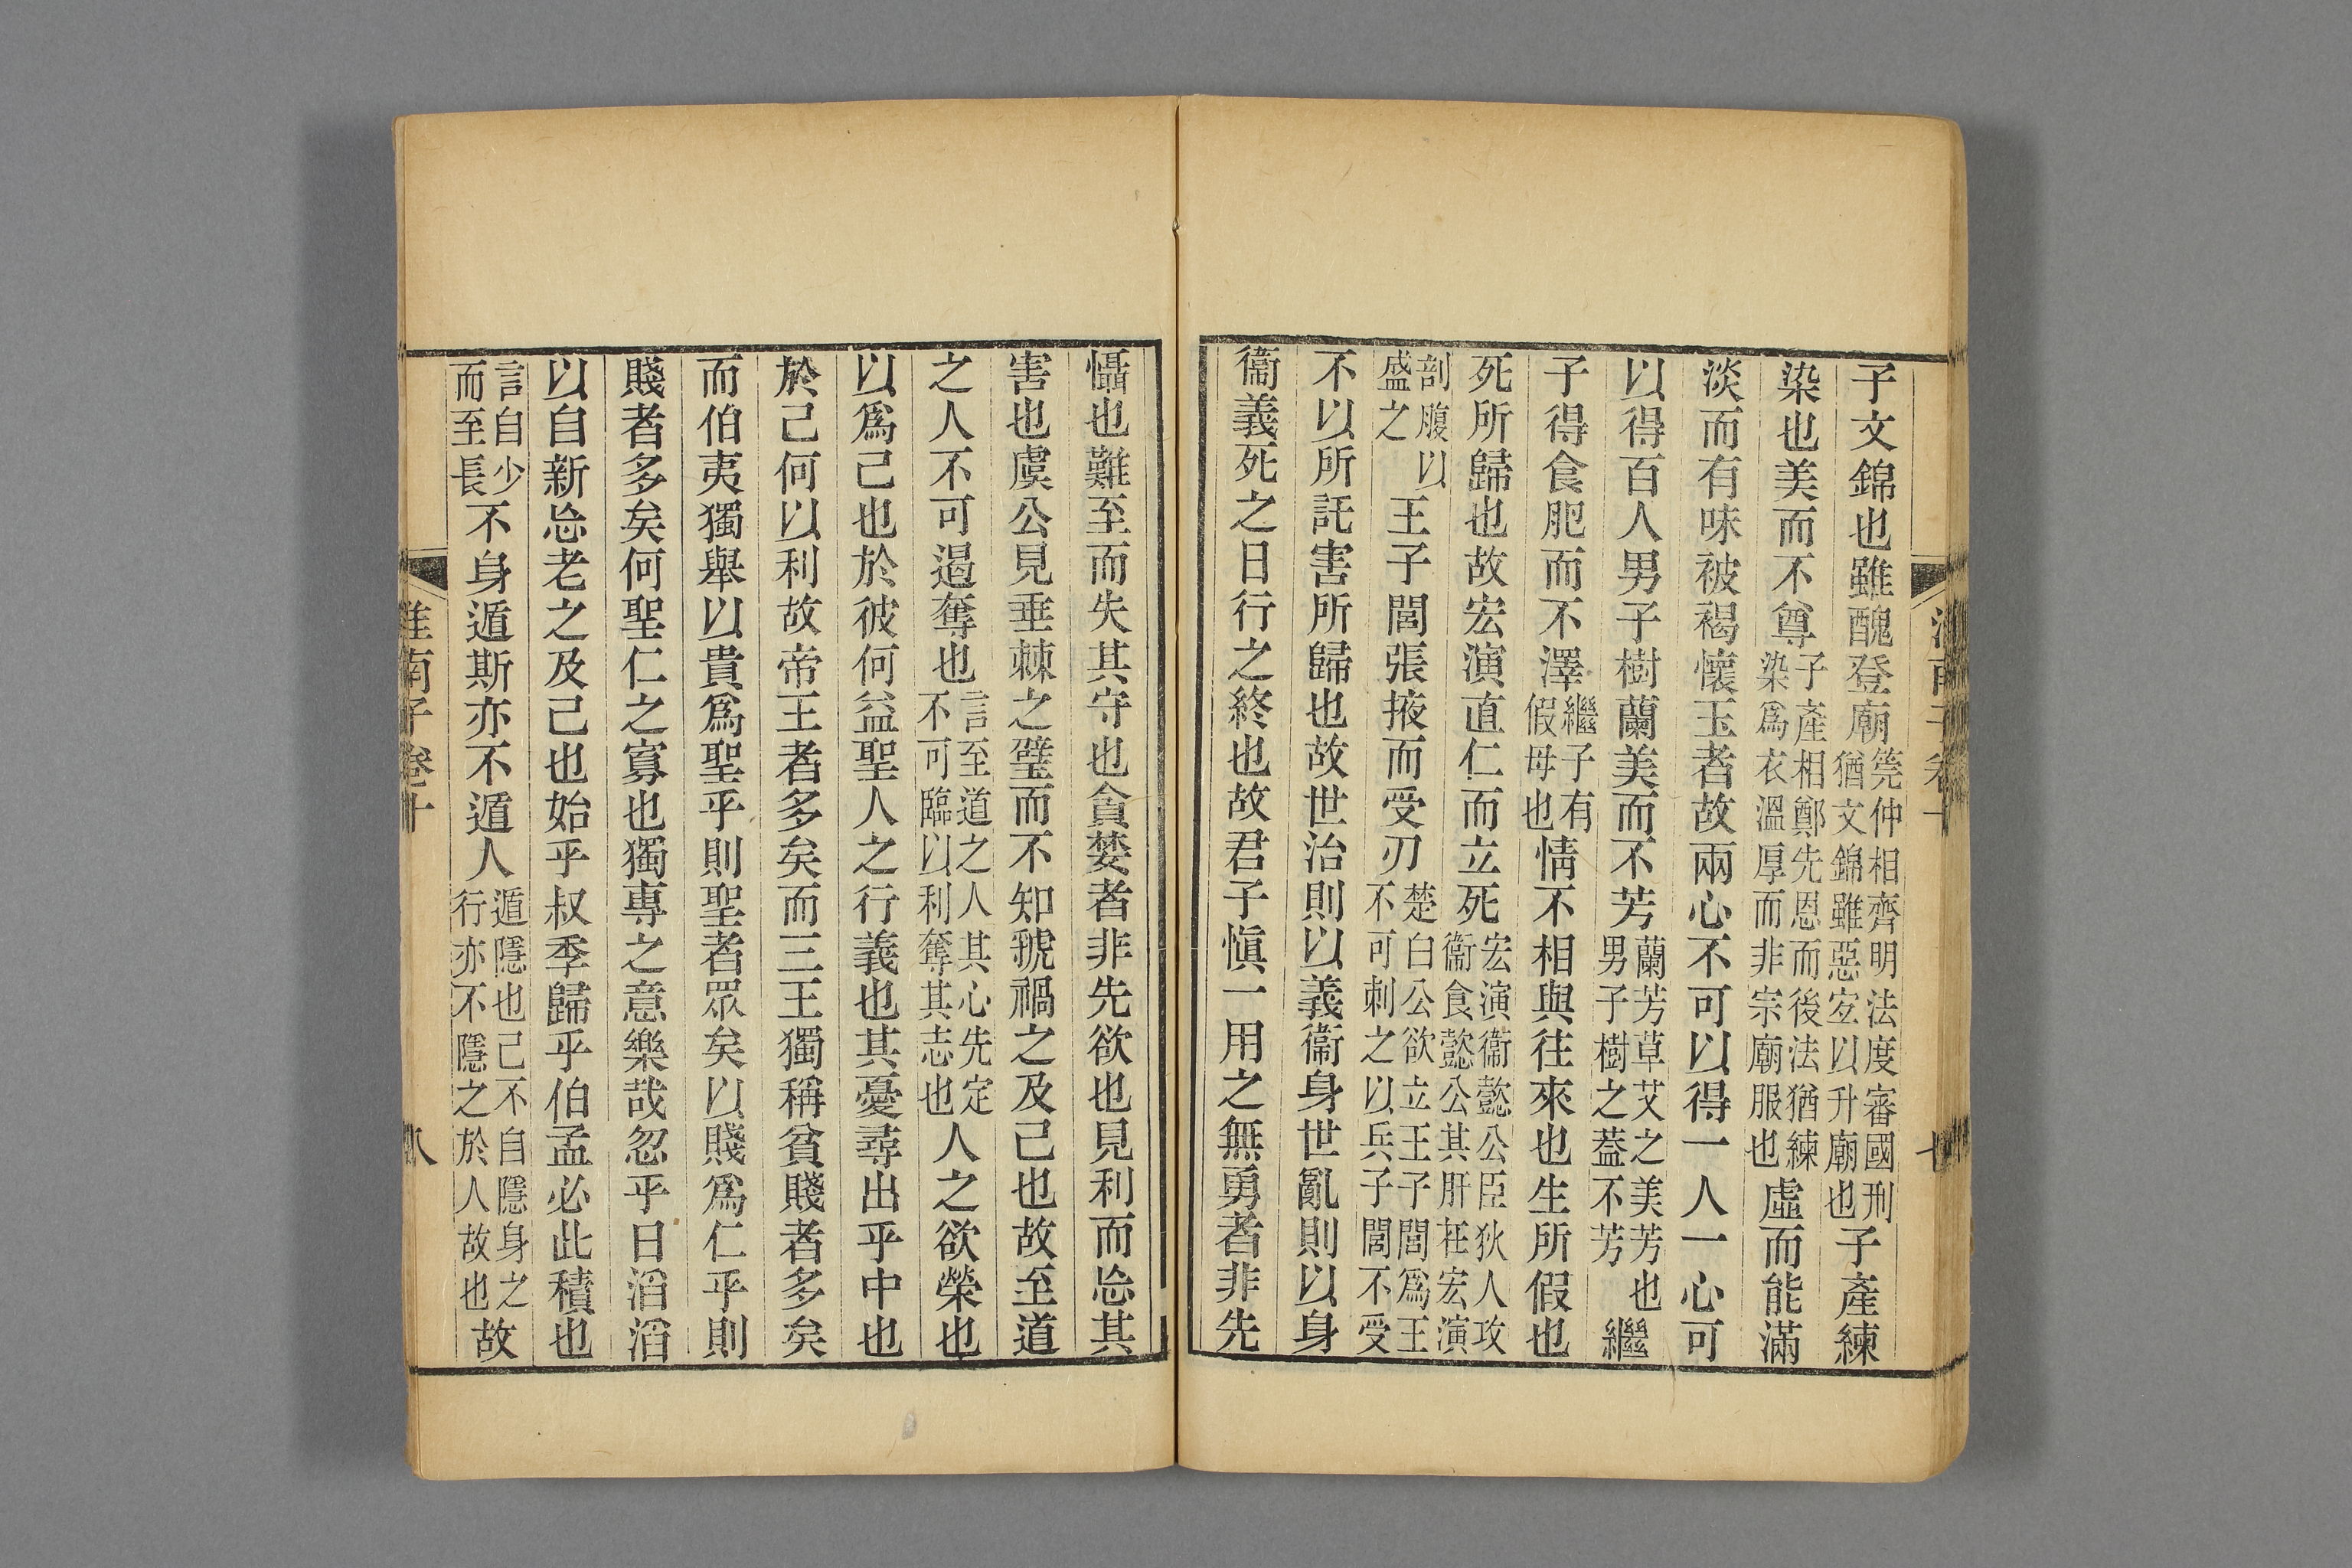 子文錦也雖醜登廟筦仲相齊明法度審國刑猶文錦雖惡宐以升廟也子產練
染也美而不尊子產相鄭先恩而後法猶練染爲衣溫厚而非宗廟服也虛而能滿
淡而有味被褐懷玉者故兩心不可以得一人一心可
以得百人男子樹蘭美而不芳蘭芳草艾之美芳也男子樹之葢不芳繼
子得食肥而不澤繼子有假母也情不相與往來也生所假也
死所歸也故宏演直仁而立死宏演衞懿公臣狄人攻衞食懿公其肝在宏演
剖腹以盛之王子閭張掖而受刃楚白公欲立王子閭爲王不可刺之以兵子閭不受
不以所託害所歸也故世治則以義衞身世亂則以身
衞義死之日行之終也故君子愼一用之無勇者非先
懾也難至而失其守也貪婪者非先欲也見利而忘其
害也虞公見垂棘之璧而不知虢禍之及己也故至道
之人不可遏奪也言至道之人其心先定不可臨以利奪其志也人之欲榮也
以爲己也於彼何益聖人之行義也其憂尋出乎中也
於己何以利故帝王者多矣而三王獨稱貧賤者多矣
而伯夷獨舉以貴爲聖乎則聖者眾矣以賤爲仁乎則
賤者多矣何聖仁之寡也獨專之意樂哉忽乎日滔滔
以自新忘老之及己也始乎叔季歸乎伯孟必此積也
言自少而至長不身遁斯亦不遁人遁隱也己不自隱身之行亦不隱之於人故也故
淮南子卷十
八